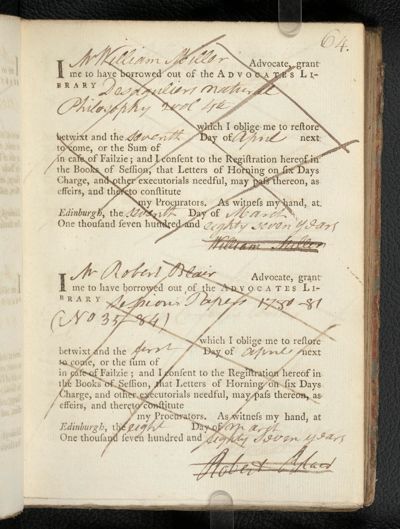 64.
I Mr William Miller Advocate, grant
me to have borrowed out of the ADVOCATES LI-
BRARY Desaguliers natural
Philosophy vol
which I oblige me to reſtore
betwixt and the seventh Day of April next
to come, or the Sum of
in caſe of Failzie; and I conſent to the Regiſtration hereof in
the Books of Seſſion, that Letters of Horning on ſix Days
Charge, and other executorials needful, may paſs thereon, as
effeirs, and thereto conſtitute
my Procurators. As witneſs my hand, at
Edinburgh, the seventh Day of March
One thouſand ſeven hundred and eighty seven years
William Miller
I Mr Robert Blair Advocate, grant
me to have borrowed out of the ADVOCATES LI-
BRARY Sessions Papers 1780-81
(No 35-84)
which I oblige me to reſtore
betwixt and the first Day of April next
to come, or the ſum of
in caſe of Failzie; and I conſent to the Regiſtration hereof in
the Books of Seſſion, that Letters of Horning on ſix Days
Charge, and other executorials needful, may paſs thereon, as
effeirs, and thereto conſtitute
my Procurators. As witneſs my hand, at
Edinburgh, the eight Day of March
One thouſand ſeven hundred and eighty seven years
Robert Blair